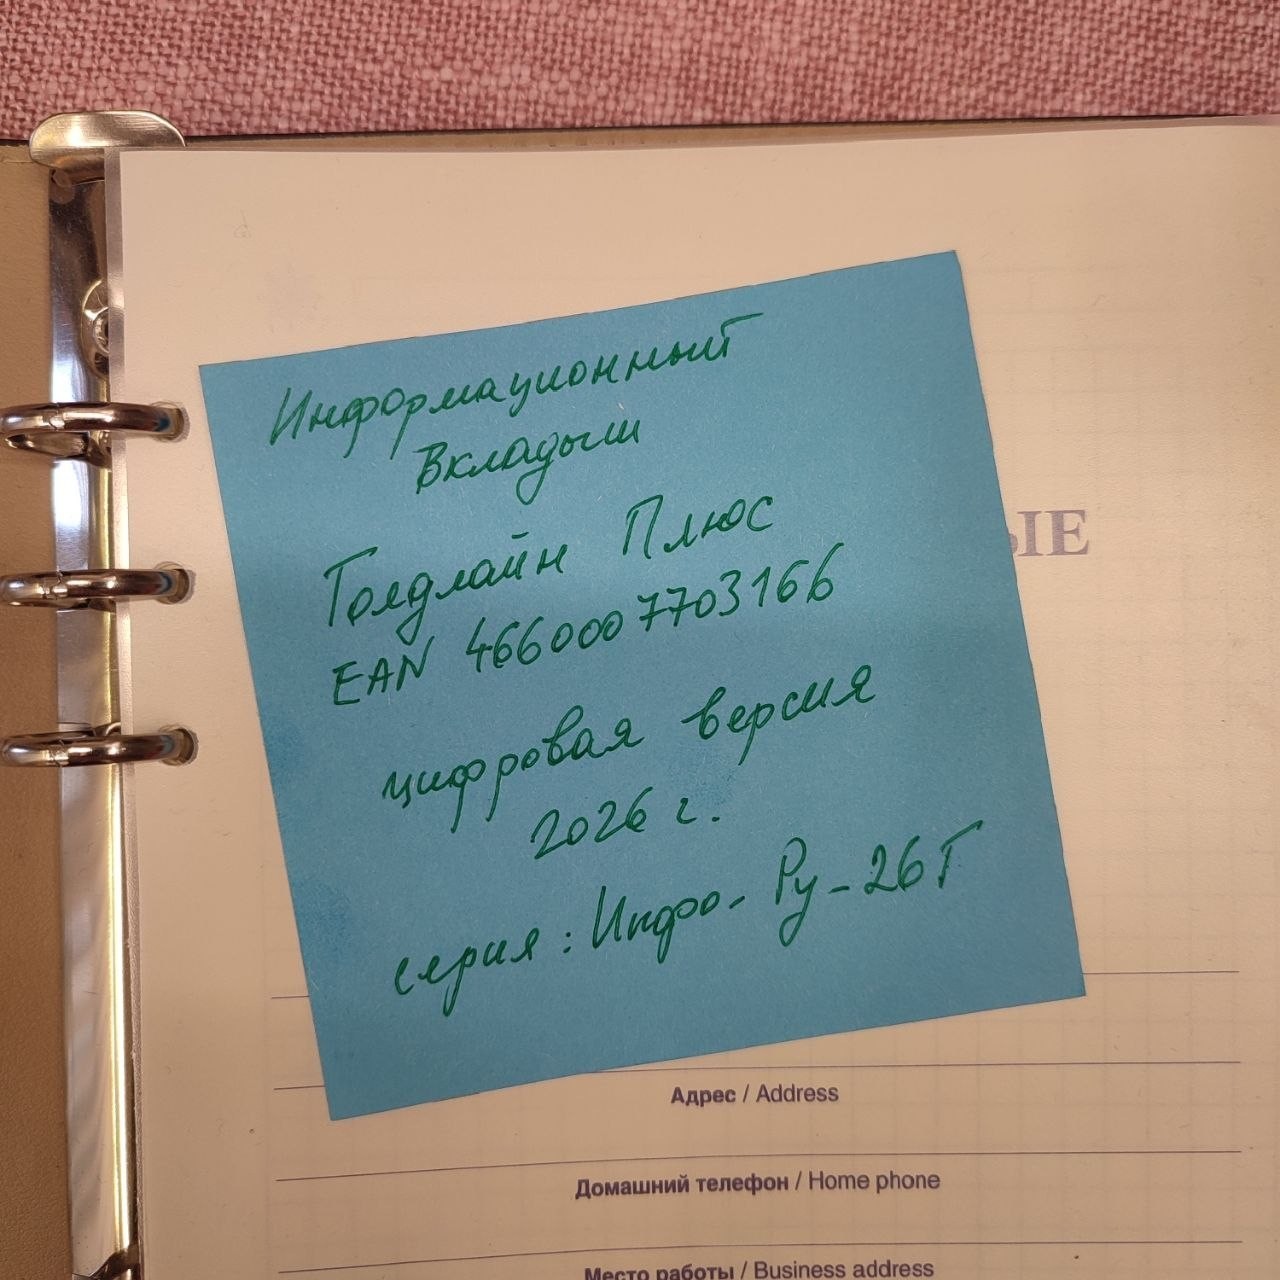 Информационный
Вкладыш
Голдлайн Плюс
EAN 4660007703166
цифровая версия
2026 г.
серия: Инфо-Ру-26Г
ЫЕ
Адрес / Address
Домашний телефон / Home phone
Место работы / Business address